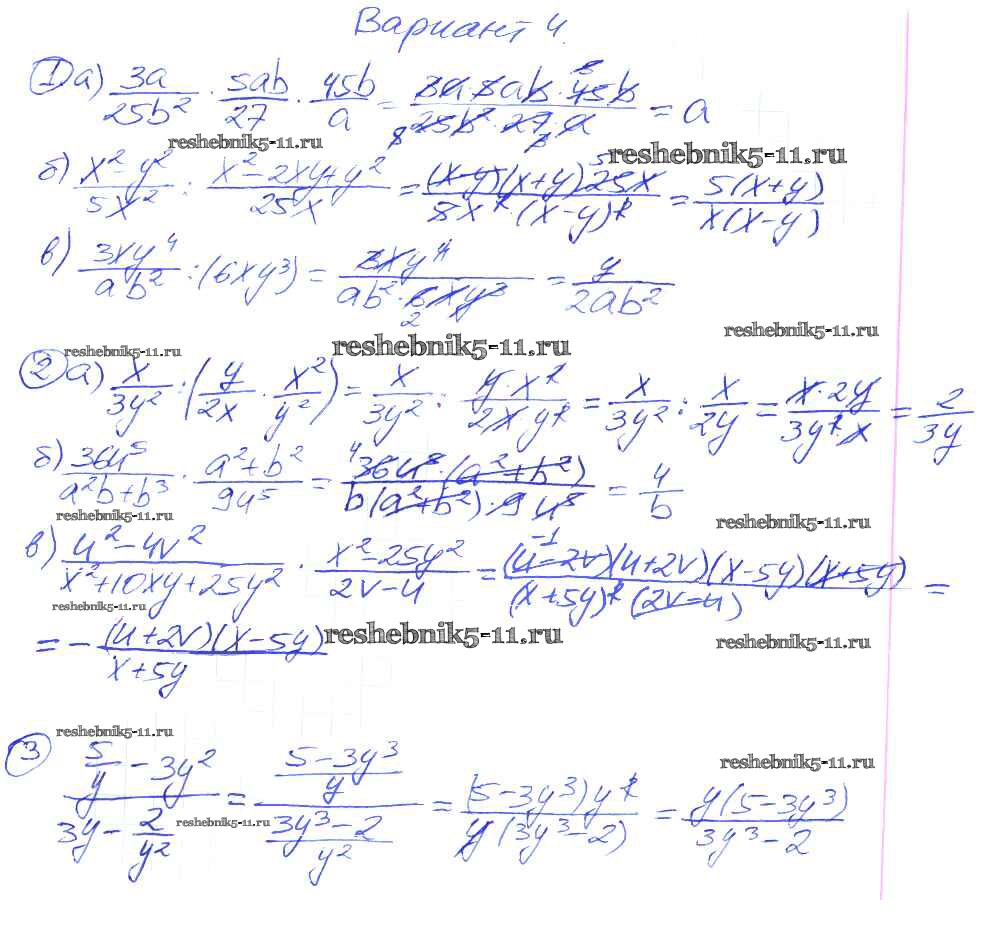 Вариант 4.
① а) 3a/25b² · 5ab/27 · 45b/a = 3a·5ab·45b/25b²·27·a = a
reshebnik5-11.ru reshebnik5-11.ru
б) x²-y²/5x² : x²-2xy+y²/25x = (x-y)(x+y)25x/5x²·(x-y)² = 5(x+y)/x(x-y)
в) 3xy⁴/ab² : (6xy³) = 3xy⁴/ab²·6xy³ = y/2ab²
reshebnik5-11.ru
reshebnik5-11.ru reshebnik5-11.ru
② а) x/3y² : (y/2x · x²/y²) = x/3y² : y·x²/2xy² = x/3y² : x/2y = x·2y/3y²·x = 2/3y
б) 36u⁵/a²b+b³ · a²+b²/9u⁵ = 36u⁵·(a²+b²)/b(a²+b²)·9u⁵ = 4/b
reshebnik5-11.ru reshebnik5-11.ru
в) u²-4v²/x²+10xy+25y² · x²-25y²/2v-u = (u-2v)(u+2v)(x-5y)(x+5y)/(x+5y)²(2v-u) =
reshebnik5-11.ru
= - (u+2v)(x-5y)/x+5y
reshebnik5-11.ru reshebnik5-11.ru
reshebnik5-11.ru
③ 5/y - 3y² / 3y - 2/y² = 5-3y³/y / 3y³-2/y² = (5-3y³)y²/y(3y³-2) = y(5-3y³)/3y³-2
reshebnik5-11.ru
reshebnik5-11.ru